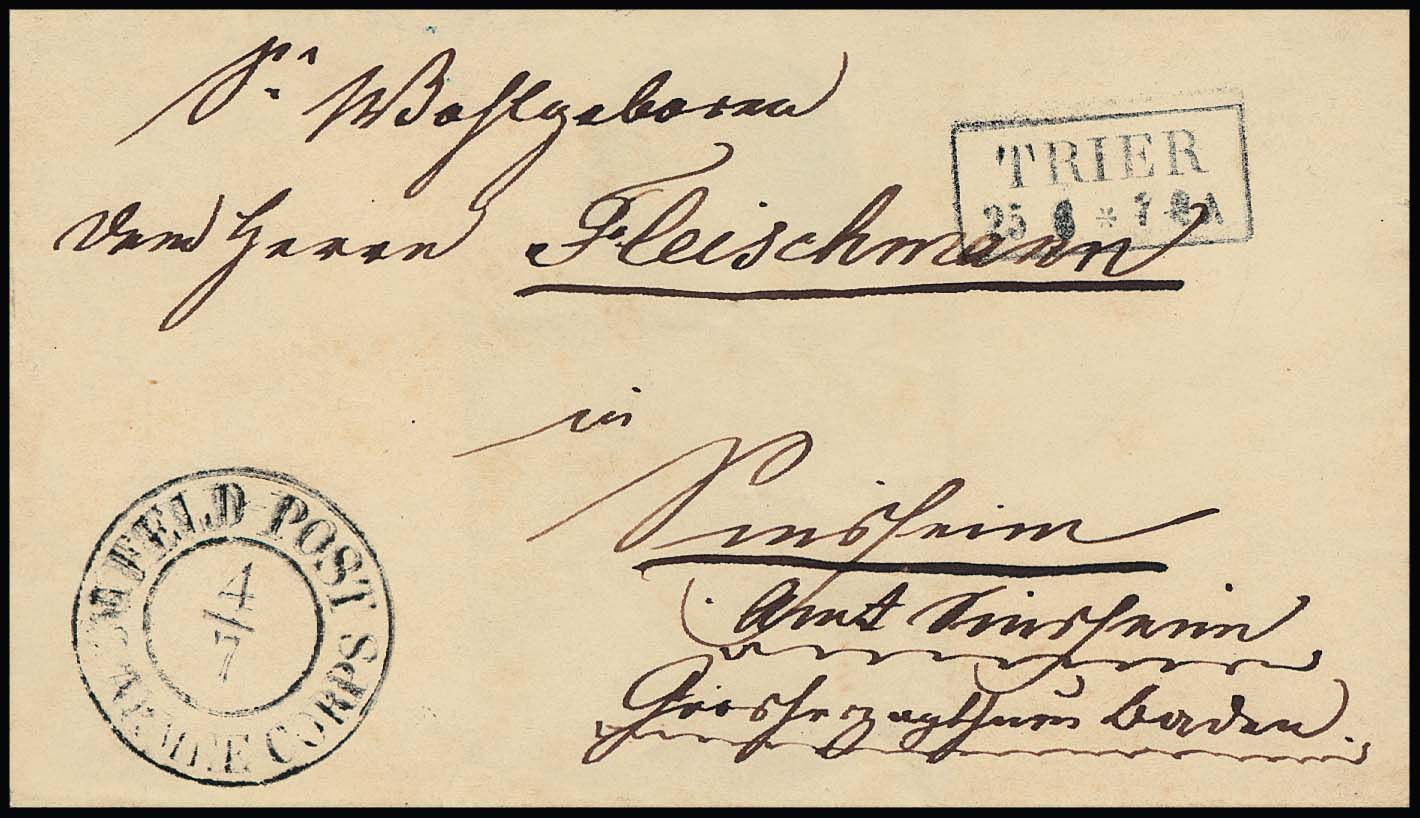 Sr Wohlgeboren
dem Herrn Fleischmann
TRIER
25 6 * 7-8 A
in
Sinsheim
(Amt Sinsheim
Grosherzogthum Baden.
FELD POST S
ARMEE CORPS
4/7